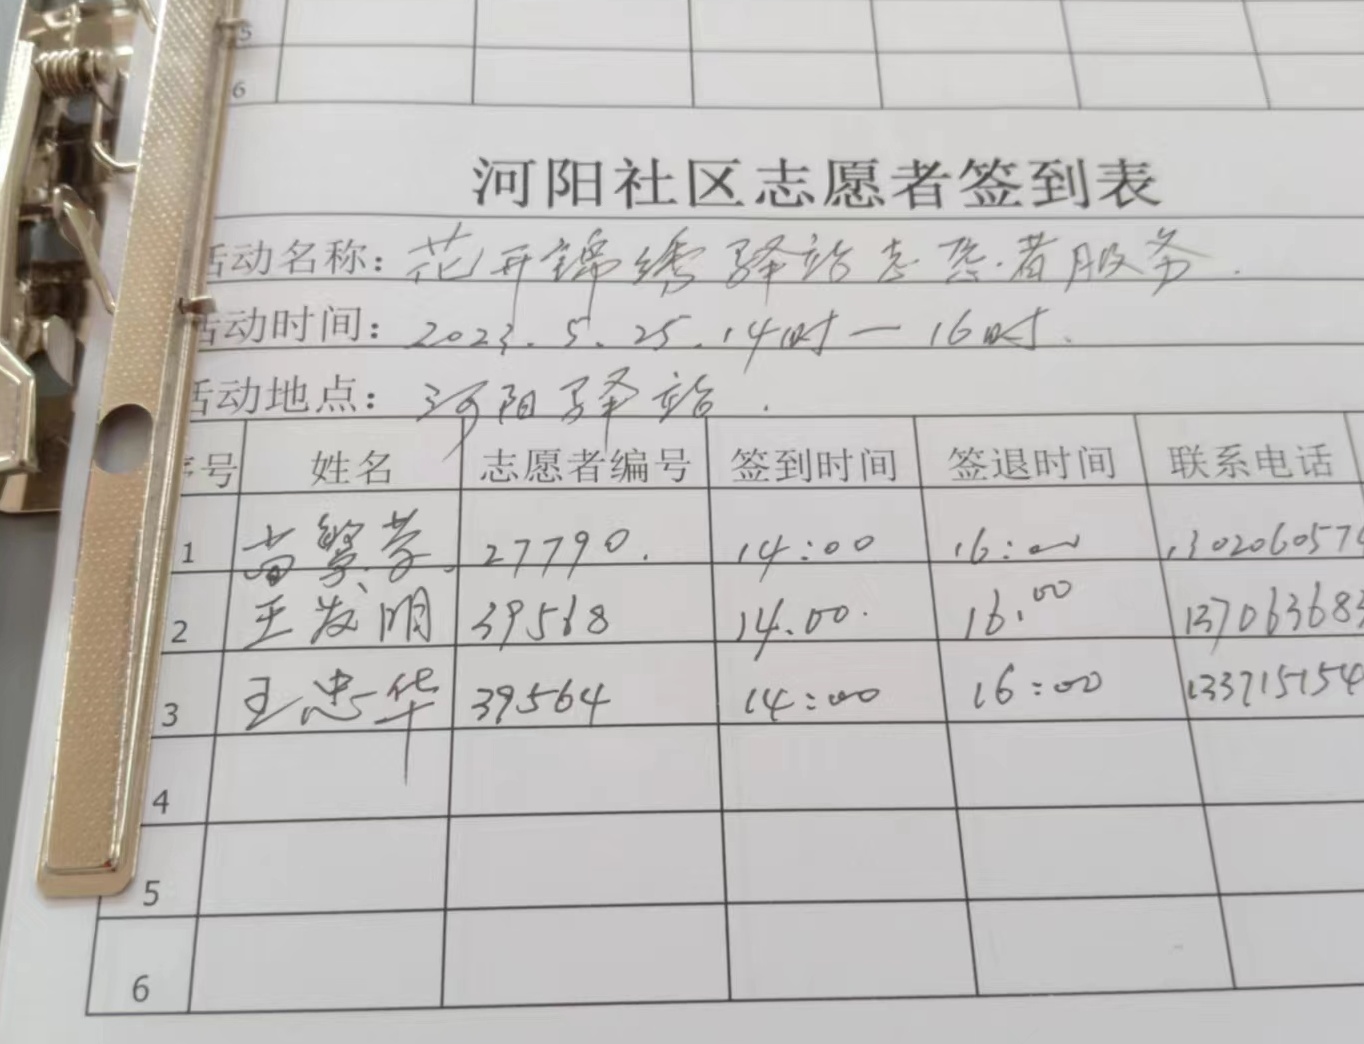 5
6
河阳社区志愿者签到表
活动名称：花开锦绣驿站志愿者服务.
活动时间：2023.5.25.14时一16时.
活动地点：河阳驿站.
序号 姓名 志愿者编号 签到时间 签退时间 联系电话
1 苗繁荣 27790. 14:00 16:00 1302060576
2 王发明 39568 14.00. 16.00 137063683
3 王忠华 39564 14:00 16:00 133715154
4
5
6